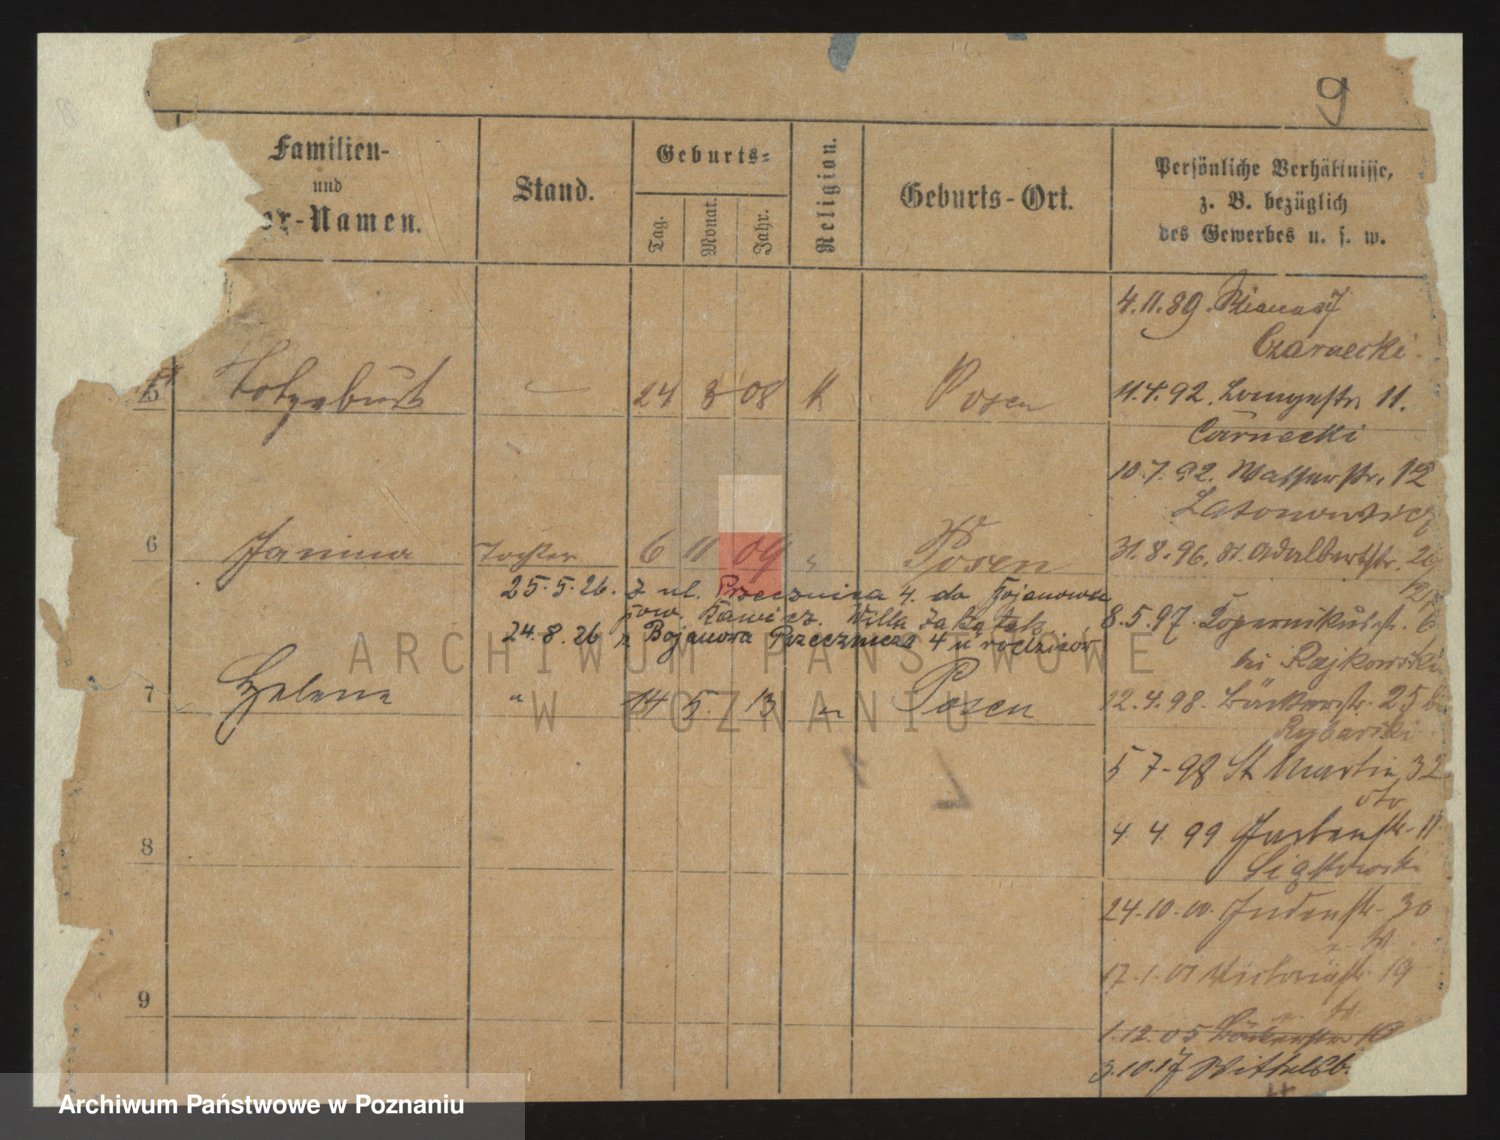 9
Familien-
und
or-Namen.
Stand.
Geburts-
Tag.
Monat.
Jahr.
Religion.
Geburts-Ort.
Persönliche Verhältnisse,
z. B. bezüglich
des Gewerbes u. s. w.
4.11.89.
Czarnecki.
5 24 8 08 K Posen
11.4.92. 11.
Czarnecki
10.7.92. Wasserstr. 12
6 Janina Tochter 6 11 09 Posen
31.8.96. St. Adalbertstr.
25.5.26. z ul. Przecznica 4. do Bojanowa
pow. Rawicz. Willa
24.8.26 z Bojanowa Przecznica 4 u rodziców
8.5.97. Kopernikusstr. 6
bei Rajkowski
7 Helene " 14 5. 13 " Posen
12.4.98. Bäckerstr. 25 bei
Rybarski
5 7-98 St Martin 32
8
4 4. 99 Gartenstr. 11
24.10.00. Judenstr. 30
17.1.01 Victoriastr. 19
9
1.12.05 Bäckerstr. 10
3.10.17 Wittelsb.
ARCHIWUM PAŃSTWOWE
W POZNANIU
Archiwum Państwowe w Poznaniu